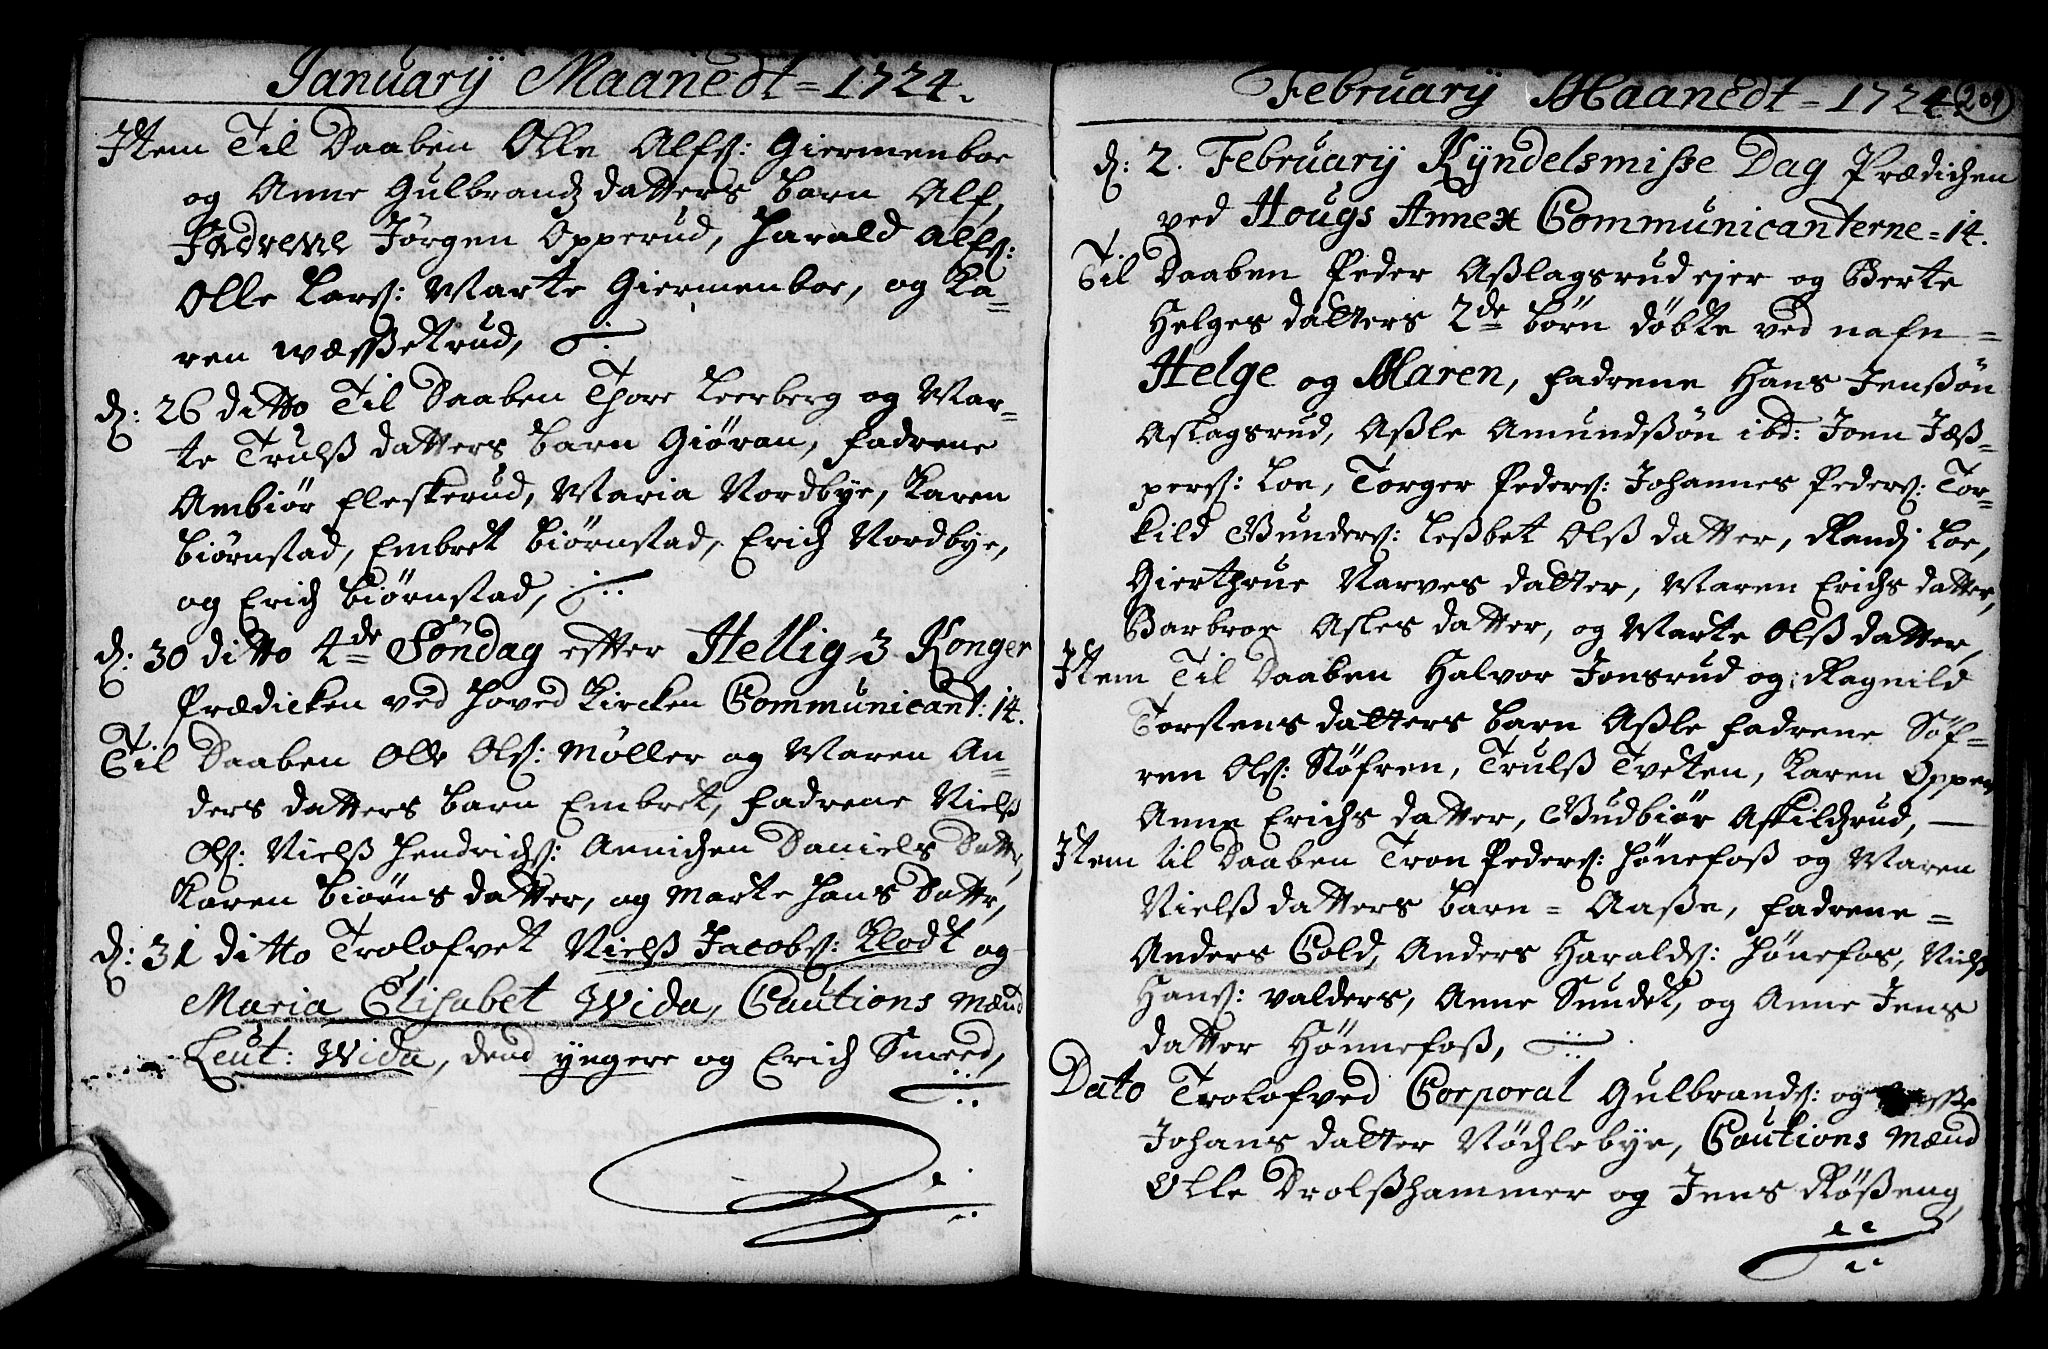 Januarij Maanedt = 1724.
Jtem Til Daaben Olle Alfs: Giermenboe
og Anne Gulbrandz datters barn Alf,
Fadrene Jørgen Opperud, Harald Alfs:
Olle Lars: Marte Giermenboe, og Ka=
ren Wæssetrud,
d: 26 ditto Til Daaben Thore Leerberg og Mar=
te Trulß datters barn Giøran, fadrene
Ambiør Fleskerud, Maria Nordbye, Karen
Biørnstad, Embret Biørnstad, Erich Nordbye,
og Erich Biørnstad,
d: 30 ditto 4de Søndag efter Hellig 3 Konger
Prædicken ved Hoved Kircken Communicant: 14.
Til Daaben Olle Ols: Møller og Maren An=
ders datters barn Embret, fadrene Nielß
Ols: Nielß Hendrichs: Annichen Daniels Datter,
Karen Biørns datter, og Marte Hans Datter,
d: 31 ditto Trolofvet Nielß Jacobs: Klodt og
Maria Elisabet Wida, Cautions Mænd
Leut: Wida, dend yngere og Erich Smeed,
Februarij Maanedt = 1724. 209
d: 2. Februarij Kyndelsmisse Dag Prædichen
ved Hougs Annex Communicanterne = 14.
Til Daaben Peder Aßlagsrud ejer og Berte
Helges datters 2de børn døbte ved nafn =
Helge og Maren, fadrene Hans Jenßøn
Aslagsrud, Aßle Amundßøn ibd: Joen Jæß=
pers: Loe, Torger Peders: Johannes Peders: Tor=
kild Gunders: Leßbet Olß datter, Randj Loe,
Gierthrue Narves datter, Maren Erichs datter,
Barbroe Asles datter, og Marte Olß datter,
Jtem Til Daaben Halvor Jonsrud og Ragnild
Torstens datters barn Aßle fadrene Søf=
ren Ols: Støfren, Trulß Tveten, Karen Oppen
Anne Erichs datter, Gudbiør Askildzrud,
Jtem til Daaben Tron Peders: Hønefoß og Maren
Nielß datters barn = Aaße, fadrene =
Anders Cold, Anders Haralds: Hønefos, Nielß
Hans: Valders, Anne Sundet, og Anne Jens
datter Hønnefoß,
Dato Trolofved Corporal Gulbrands: og
Johans datter Nøchlebye, Cautions Mænd
Olle Drolßhammer og Jens Røßeng,